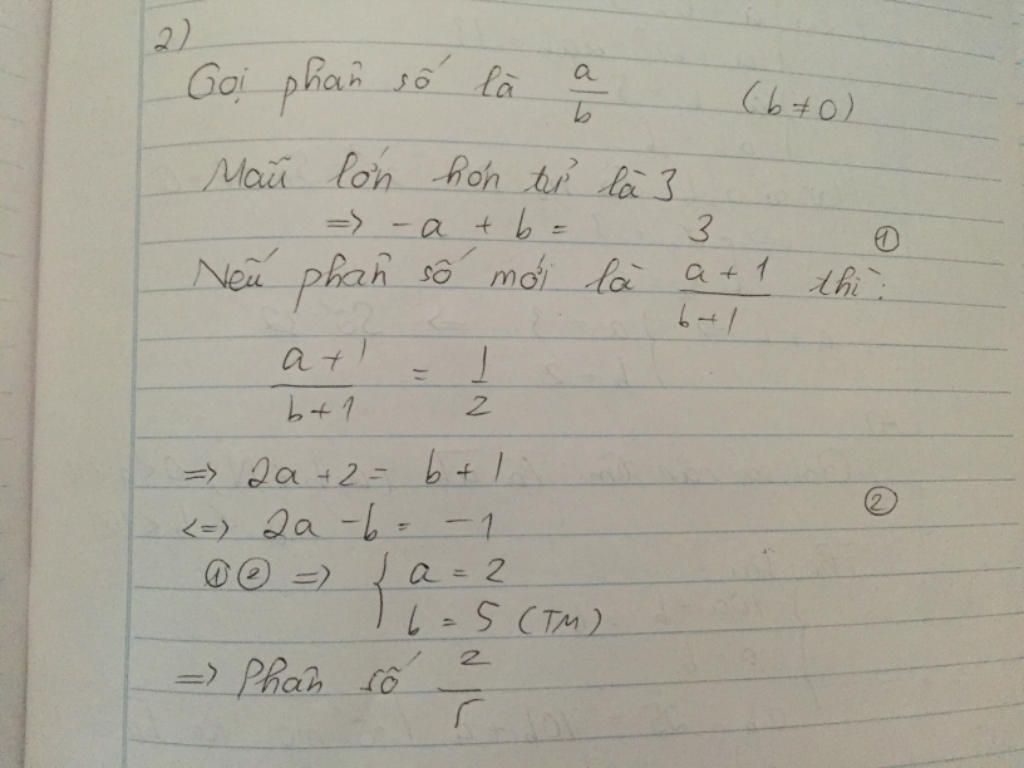 2)
Gọi phân số là a/b (b ≠ 0)
Mẫu lớn hơn tử là 3
=> -a + b = 3 ①
Nếu phân số mới là (a + 1)/(b + 1) thì:
(a + 1)/(b + 1) = 1/2
=> 2a + 2 = b + 1
<=> 2a - b = -1 ②
①② => { a = 2
b = 5 (TM)
=> Phân số 2/5